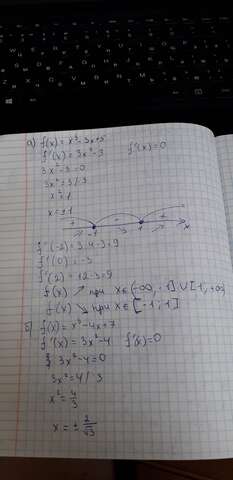 а) f(x) = x³ - 3x + 5
f'(x) = 3x² - 3 f'(x) = 0
3x² - 3 = 0
3x² = 3 / 3
x² = 1
x = ±1
+ - +
-1 1 x
f'(-2) = 3·4 - 3 = 9
f'(0) = -3
f'(2) = 12 - 3 = 9
f(x) ↗ при x ∈ (-∞, -1] ∪ [1, +∞)
f(x) ↘ при x ∈ [-1, 1]
б) f(x) = x³ - 4x + 7
f'(x) = 3x² - 4 f'(x) = 0
3x² - 4 = 0
3x² = 4 / 3
x² = 4/3
x = ± 2/√3